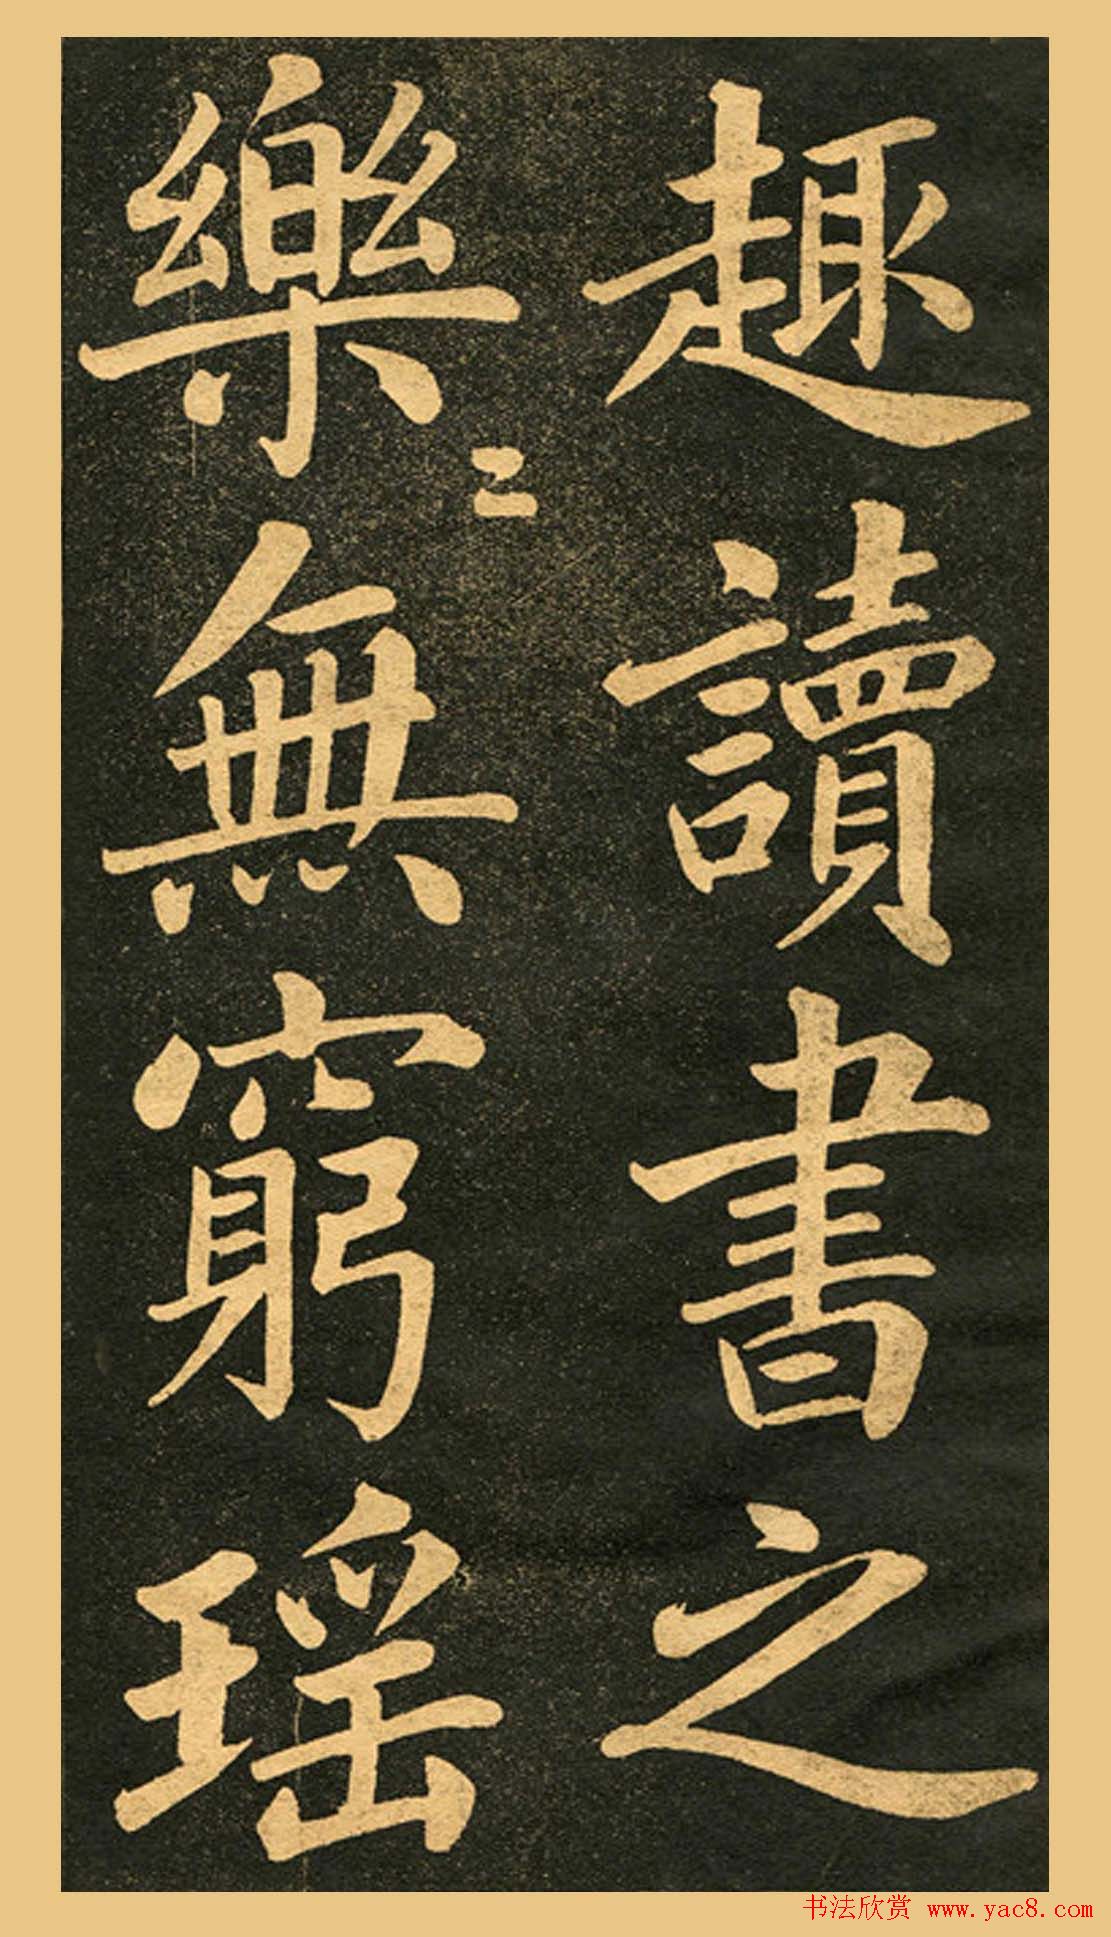 趣讀書之
樂〻無窮瑶
书法欣赏 www.yac8.com